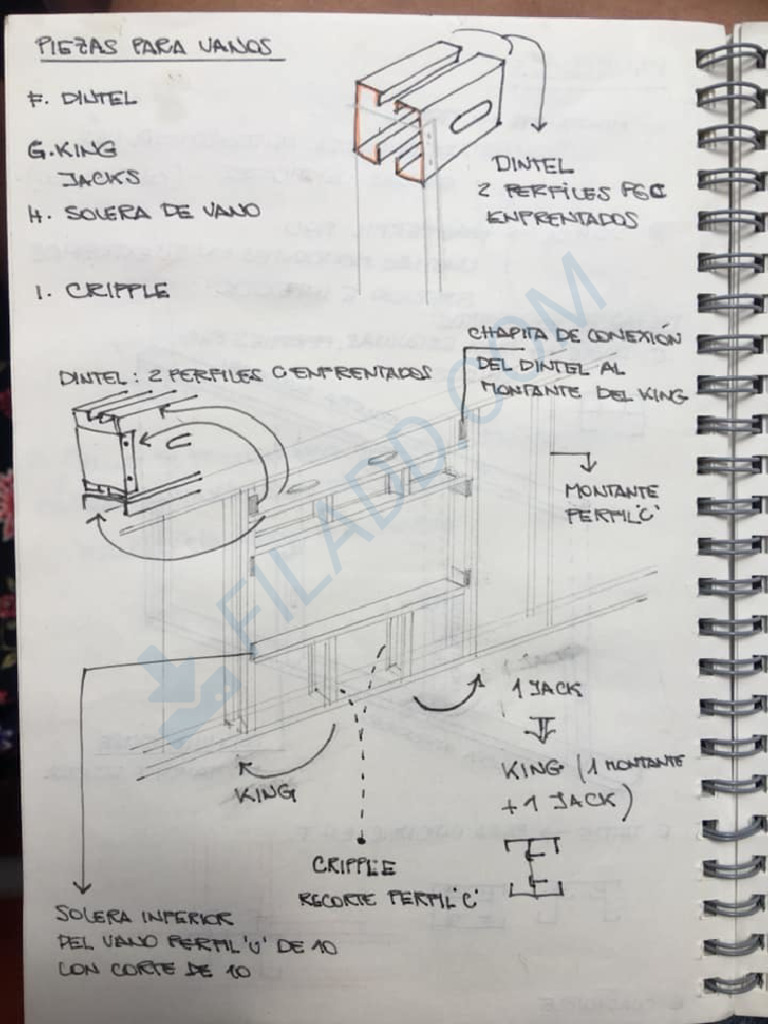 PIEZAS PARA VANOS
F. DINTEL
G. KING
JACKS
H. SOLERA DE VANO
I. CRIPPLE
DINTEL
2 PERFILES PGC
ENFRENTADOS
CHAPITA DE CONEXIÓN
DEL DINTEL AL
MONTANTE DEL KING
DINTEL: 2 PERFILES C ENFRENTADOS
MONTANTE
PERFIL 'C'
FILADD.COM
1 JACK
KING (1 MONTANTE
+ 1 JACK)
KING
CRIPPLE
RECORTE PERFIL 'C'
SOLERA INFERIOR
DEL VANO PERFIL 'U' DE 10
CON CORTE DE 10